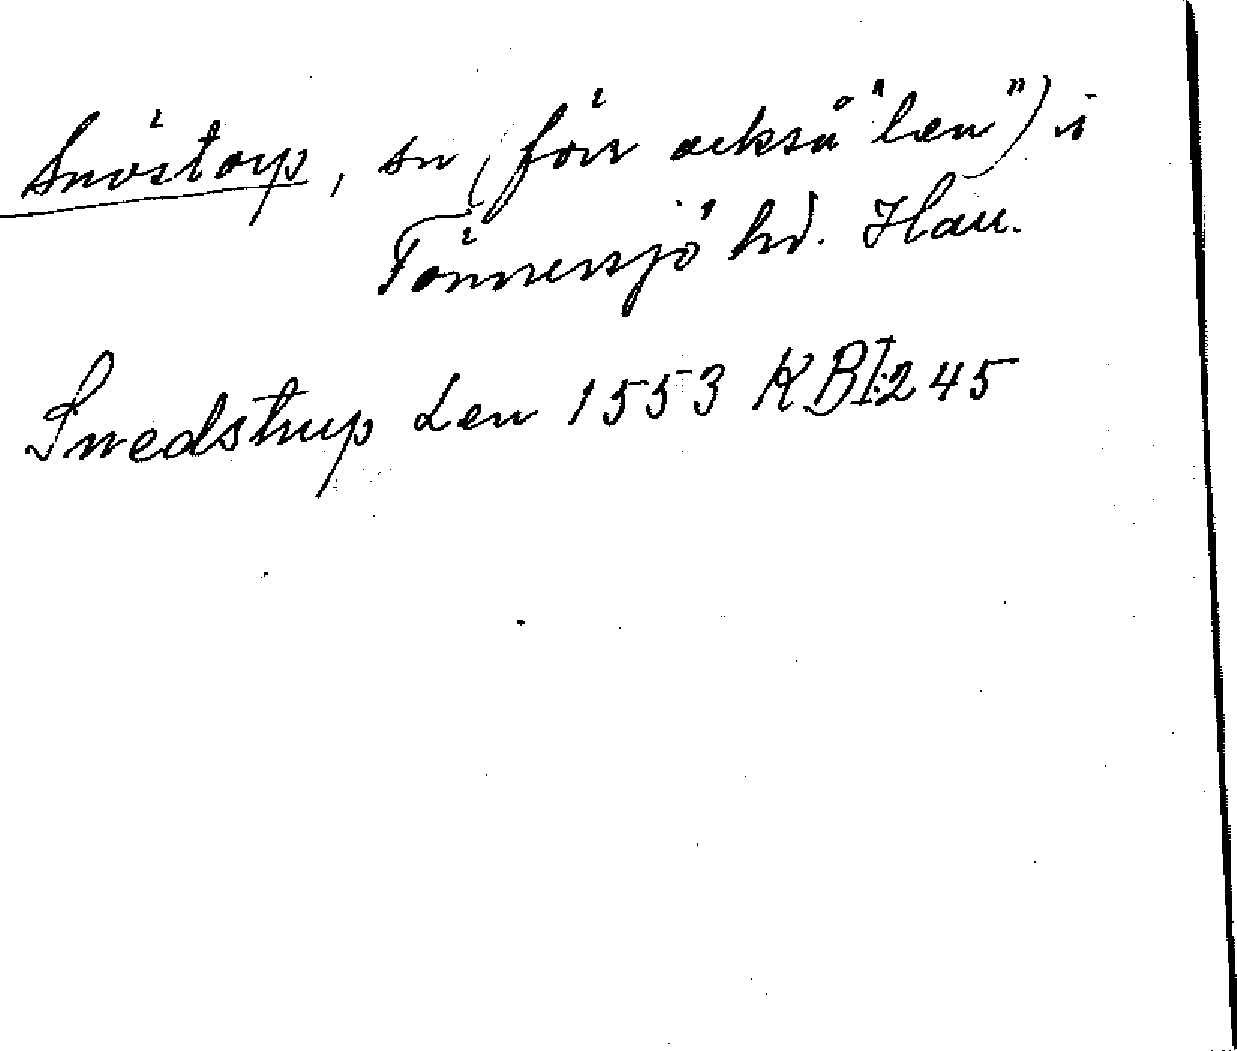 Snöstorp, sn (förr också "len") i
Tönnersjö hd. Hall.
Snedstrup Len 1553 KBI:245